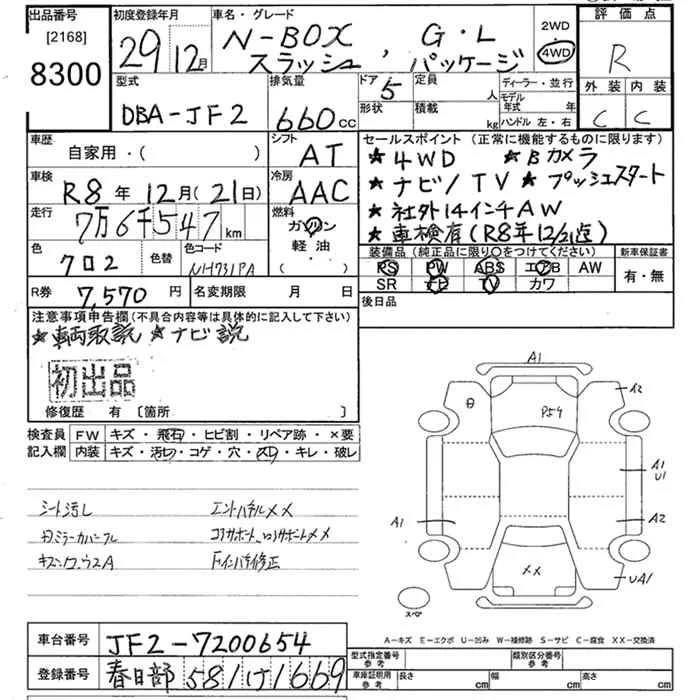 出品番号
[2168]
8300
初度登録年月
29 12月
車名・グレード
N-BOX スラッシュ, G・L パッケージ
2WD
4WD
評価点
R
外装 内装
C C
型式
DBA-JF2
排気量
660 cc
ドア 5
形状
定員 人
積載 kg
ディーラー・並行
モデル年式 年
ハンドル 左・右
車歴
自家用・( )
シフト
AT
車検
R8年 12月(21日)
冷房
AAC
走行
7万6千547 km
燃料
ガソリン
軽油
( )
色
クロ2
色替
色コード
NH731PA
R券
7,570 円
名変期限 月 日
セールスポイント (正常に機能するものに限ります)
★4WD ★Bカメラ
★ナビ/TV ★プッシュスタート
★社外14インチAW
★車検有(R8年12/21迄)
装備品(純正品に限り○をつけてください)
PS PW ABS エアB AW
SR ナビ TV カワ
新車保証書
有・無
後日品
注意事項申告欄(不具合内容等は具体的に記入して下さい)
★車両取説 ★ナビ説
初出品
修復歴 有 [箇所 ]
検査員記入欄
FW キズ・飛石・ヒビ割・リペア跡・×要
内装 キズ・汚レ・コゲ・穴・スレ・キレ・破レ
シート汚し
エンドパネルXX
コアサポート
Fインパネ修正
A1
A2
P59
A1
U1
A1
A2
XX
UA1
スペア
A-キズ E-エクボ U-凹み W-補修跡 S-サビ C-腐食 XX-交換済
車台番号
JF2-7200654
登録番号
春日部 581 け 1669
型式指定番号 参考
類別区分番号 参考
車庫証明用 参考
長さ cm
幅 cm
高さ cm